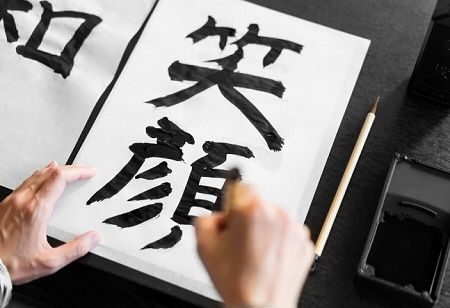 笑
顔
和